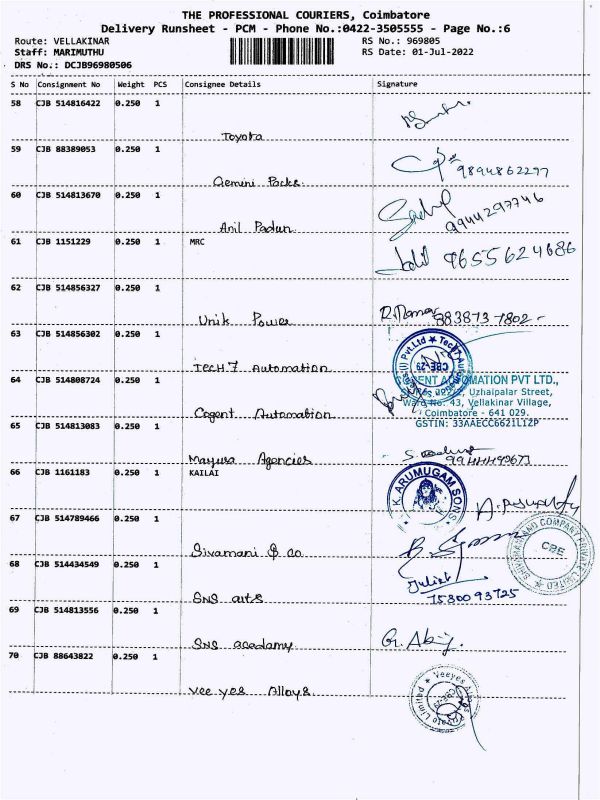 THE PROFESSIONAL COURIERS, Coimbatore
Delivery Runsheet - PCM - Phone No.:0422-3505555 - Page No.:6
Route: VELLAKINAR
RS No.: 969805
Staff: MARIMUTHU
RS Date: 01-Jul-2022
DRS No.: DCJB96980506
S No Consignment No Weight PCS Consignee Details Signature
58 CJB 514816422 0.250 1
Toyota
59 CJB 88389053 0.250 1
Gemini Packs.
9894862297
60 CJB 514813670 0.250 1
Anil Padun
9944297746
61 CJB 1151229 0.250 1 MRC
9655624686
62 CJB 514856327 0.250 1
Unik Power
63 CJB 514856302 0.250 1
TECH.7 Automation
Pvt.Ltd ★ Tech7 Automation
CBE-29
64 CJB 514808724 0.250 1
Cogent Automation
AUTOMATION PVT LTD.,
Uzhaipalar Street,
Ward No. 43, Vellakinar Village,
Coimbatore - 641 029.
GSTIN: 33AAECC6621L1ZP
65 CJB 514813083 0.250 1
Mayura Agencies
66 CJB 1161183 0.250 1 KAILAI
K. ARUMUGAM SONS
67 CJB 514789466 0.250 1
Sivamani & co.
COMPANY PRIVATE LIMITED
CBE
68 CJB 514434549 0.250 1
SNS arts
Juliet
7530093725
69 CJB 514813556 0.250 1
SNS acedamy
70 CJB 88643822 0.250 1
Vee yes Alloys
Veeyes Alloys Private Limited